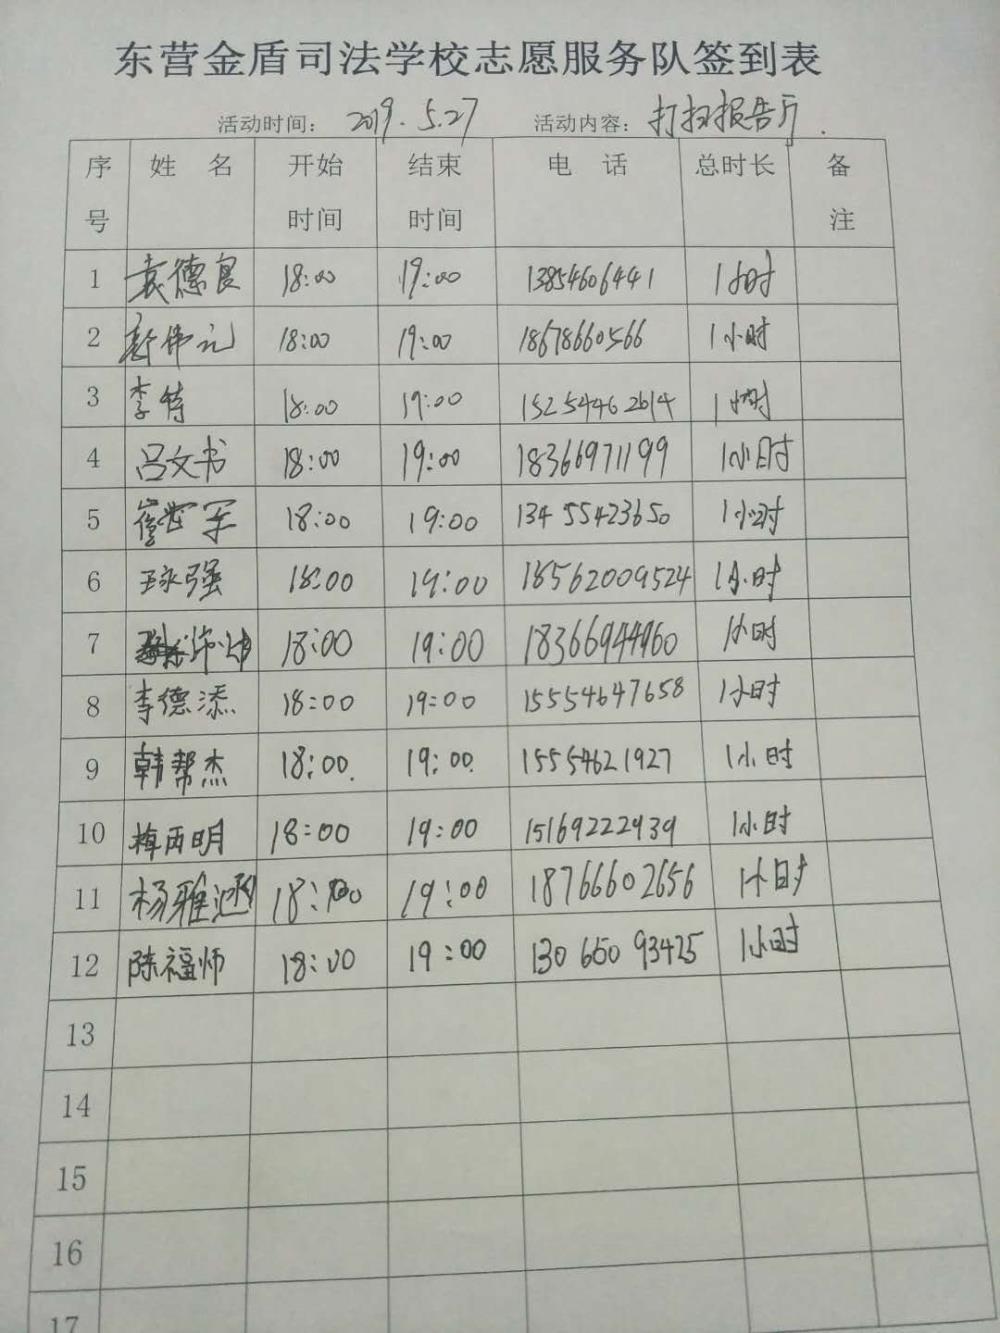 东营金盾司法学校志愿服务队签到表
活动时间： 2019.5.27 活动内容： 打扫报告厅.
序号 姓 名 开始时间 结束时间 电 话 总时长 备注
1 袁德良 18:00 19:00 13854606441 1小时
2 18:00 19:00 18678660566 1小时
3 李特 18:00 19:00 15254462614 1小时
4 吕文书 18:00 19:00 18366971199 1小时
5 18:00 19:00 13455423650 1小时
6 18:00 19:00 18562009524 1小时
7 18:00 19:00 18366944960 1小时
8 李德添 18:00 19:00 15554647658 1小时
9 韩帮杰 18:00. 19:00. 15554621927 1小时
10 18:00 19:00 15169222939 1小时
11 杨雅涵 18:00 19:00 18766602656 1小时
12 陈福师 18:00 19:00 13065093425 1小时
13
14
15
16
17